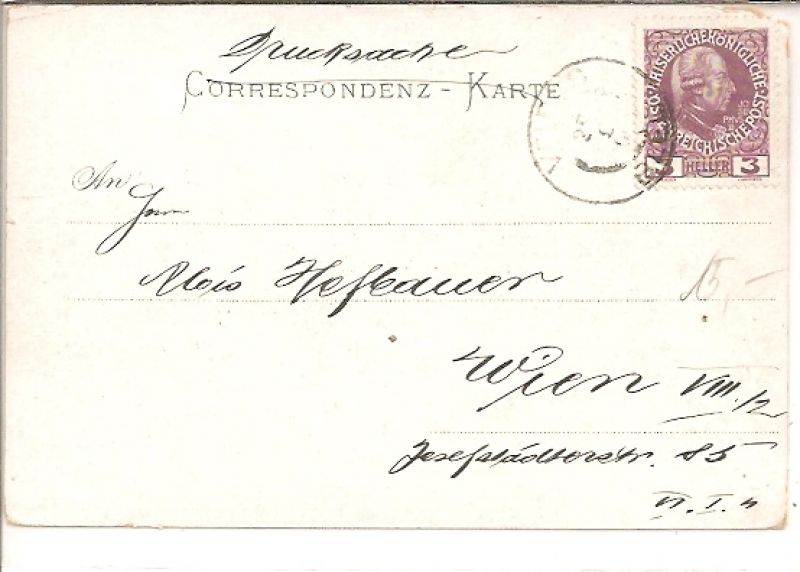 Drucksache
CORRESPONDENZ - KARTE
KAISERLICHE KÖNIGLICHE ÖSTERREICHISCHE POST
HELLER 3
An
Herrn
Alois Hofbauer
15,-
Wien VIII./2
Josefstädterstr. 85